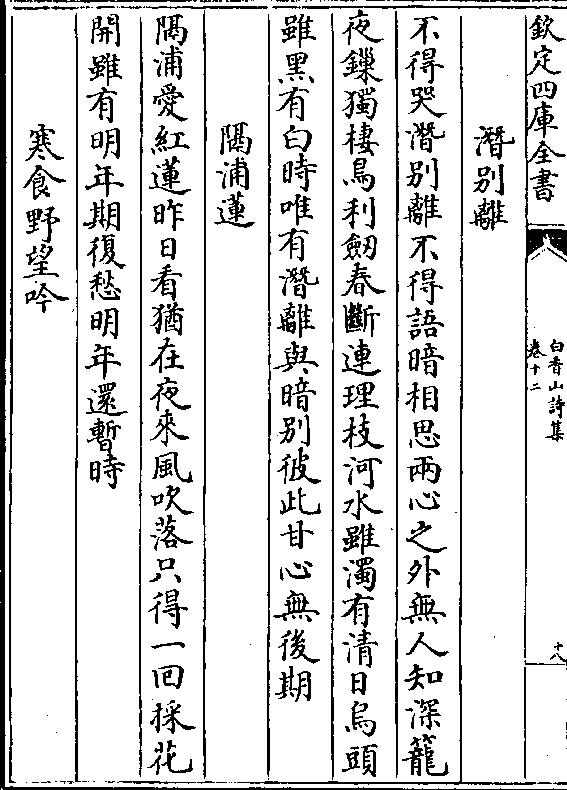 欽定四庫全書
白香山詩集
卷十二
十八
潛別離
不得哭潛別離不得語暗相思兩心之外無人知深籠
夜鏁獨棲鳥利劒春斷連理枝河水雖濁有清日烏頭
雖黑有白時唯有潛離與暗別彼此甘心無後期
隔浦蓮
隔浦愛紅蓮昨日看猶在夜來風吹落只得一回採花
開雖有明年期復愁明年還暫時
寒食野望吟